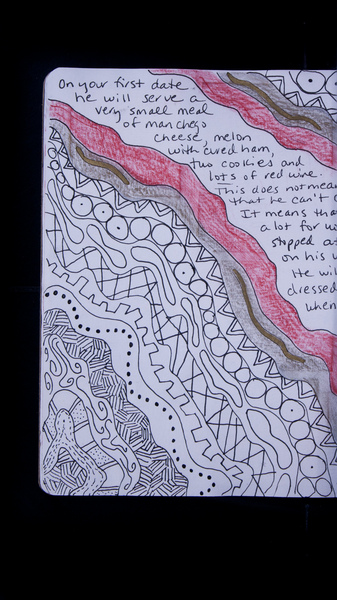 On your first date
he will serve a
very small meal
of manchego
cheese, melon
with cured ham,
two cookies and
lots of red wine.
This does not mean
that he can't
It means tha
a lot for
stopped at
on his
He wil
dressed
when